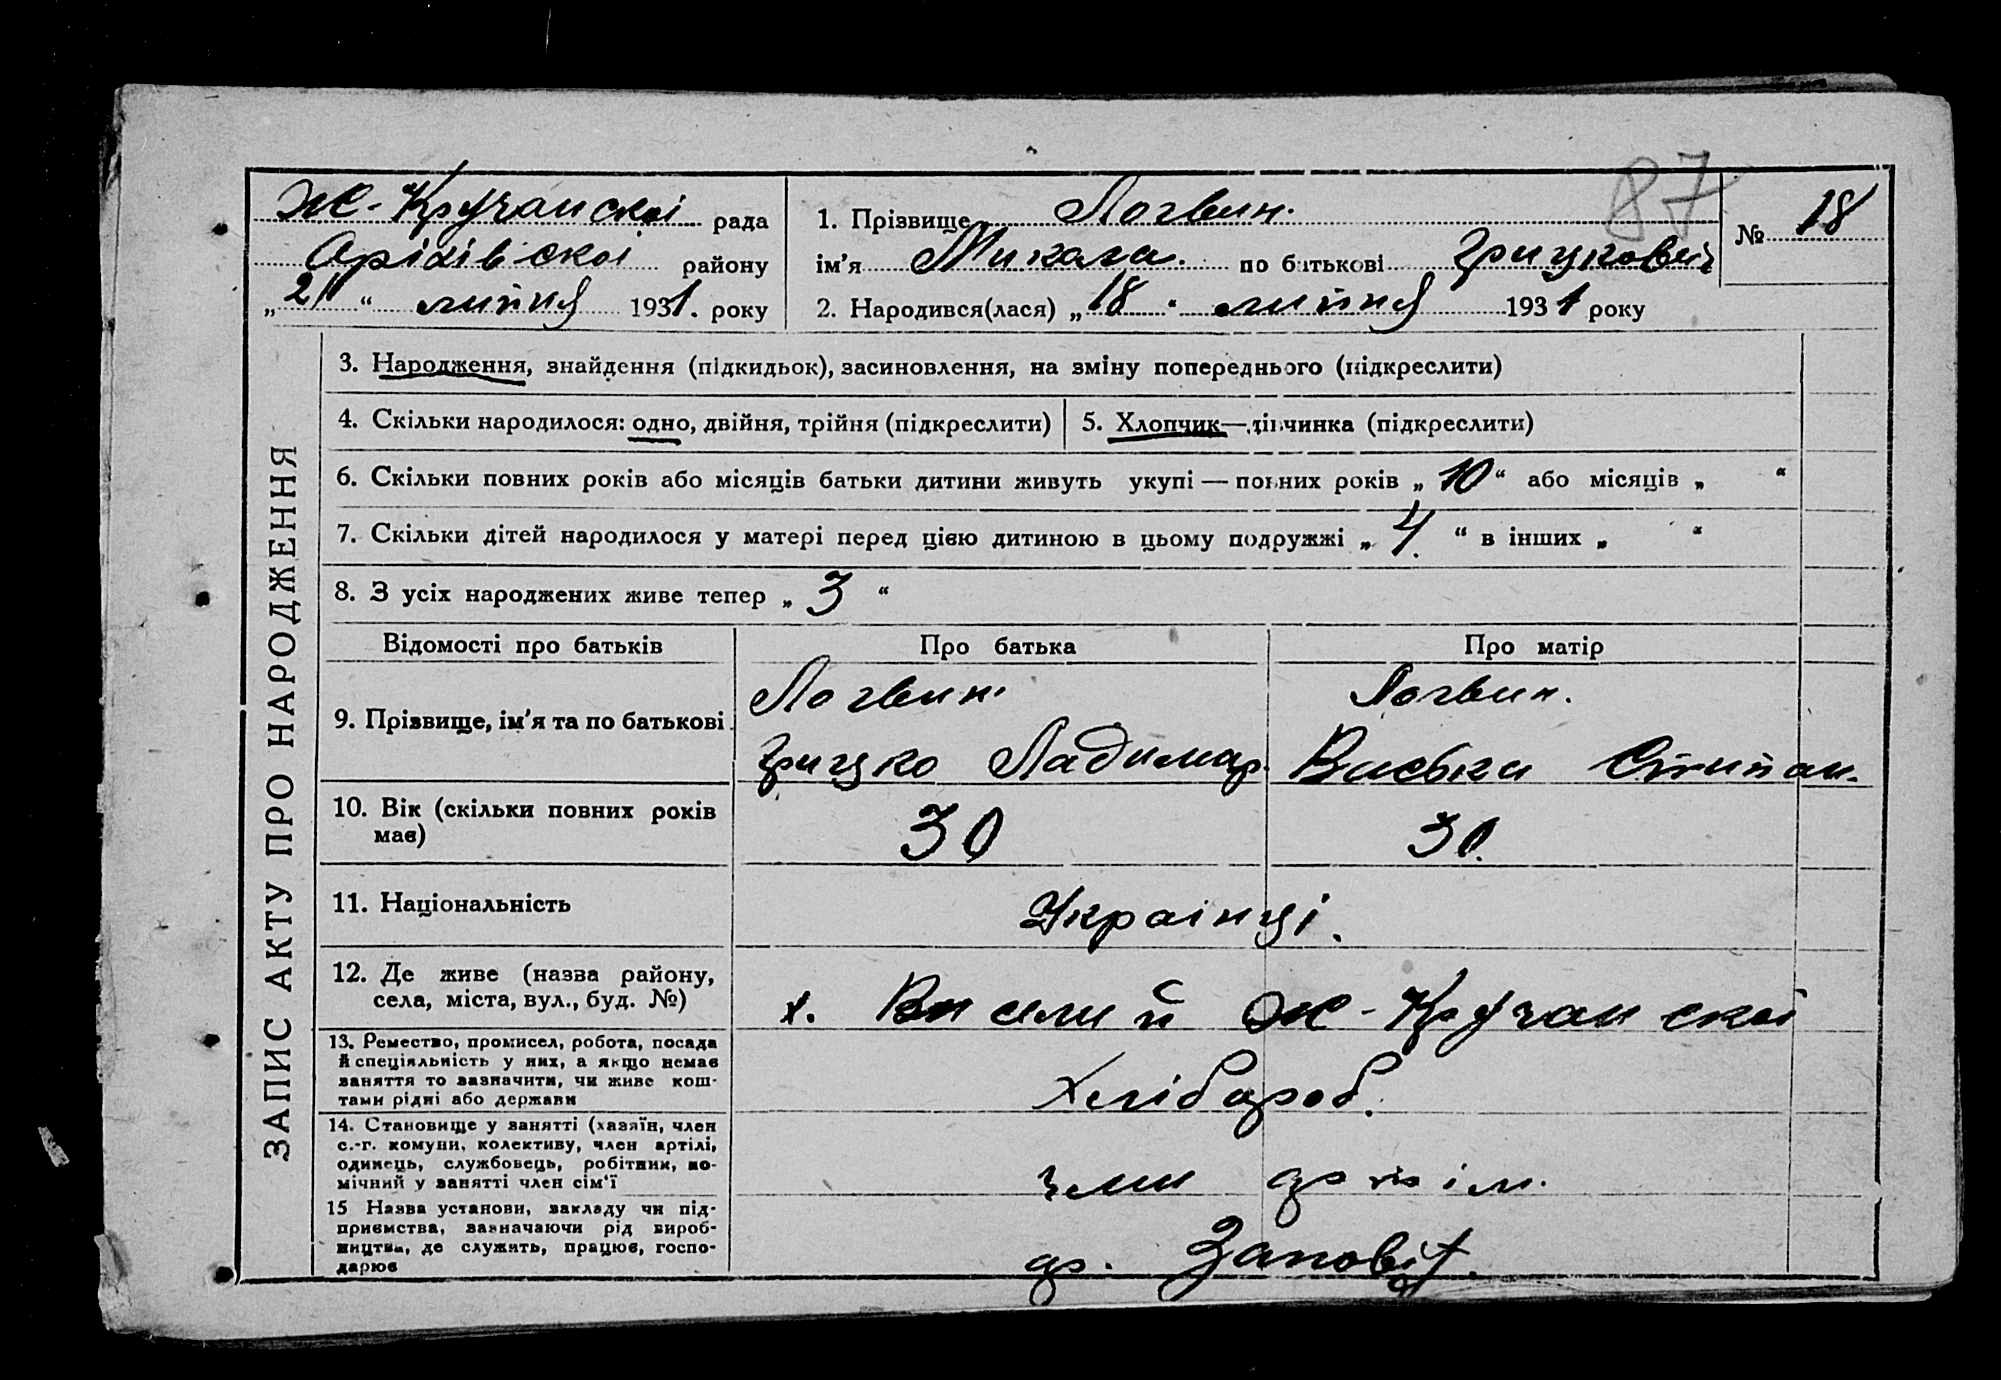 87
Ж-Кручанскоі рада
Оріхівскоі району
„21“ липня 1931. року
1. Прізвище Логвин.
ім'я Микола. по батькові Грицкович
2. Народився(лася) „18“ липня 1931 року
№ 18
ЗАПИС АКТУ ПРО НАРОДЖЕННЯ
3. Народження, знайдення (підкидьок), засиновлення, на зміну попереднього (підкреслити)
4. Скільки народилося: одно, двійня, трійня (підкреслити)
5. Хлопчик—дівчинка (підкреслити)
6. Скільки повних років або місяців батьки дитини живуть укупі — повних років „10“ або місяців „ “
7. Скільки дітей народилося у матері перед цією дитиною в цьому подружжі „4.“ в інших „ “
8. З усіх народжених живе тепер „3“
Відомості про батьків
Про батька
Про матір
9. Прізвище, ім'я та по батькові
Логвин
Грицко Ладимар.
Логвин.
Стипан.
10. Вік (скільки повних років
має)
30
30.
11. Національність
Украінці.
12. Де живе (назва району,
села, міста, вул., буд. №)
х. Ж-Кручанскоі
13. Ремество, промисел, робота, посада
й спеціяльність у них, а якщо немає
заняття то зазначити, чи живе кош-
тами рідні або держави
Хлібороб.
14. Становище у занятті (хазяїн, член
с.-г. комуни, колективу, член артілі,
одинець, службовець, робітник, по-
мічний у занятті член сім'ї
член
15 Назва установи, закладу чи під-
приємства, зазначаючи рід вироб-
ництва, де служить, працює, госпо-
дарює
ар. Заповіт.